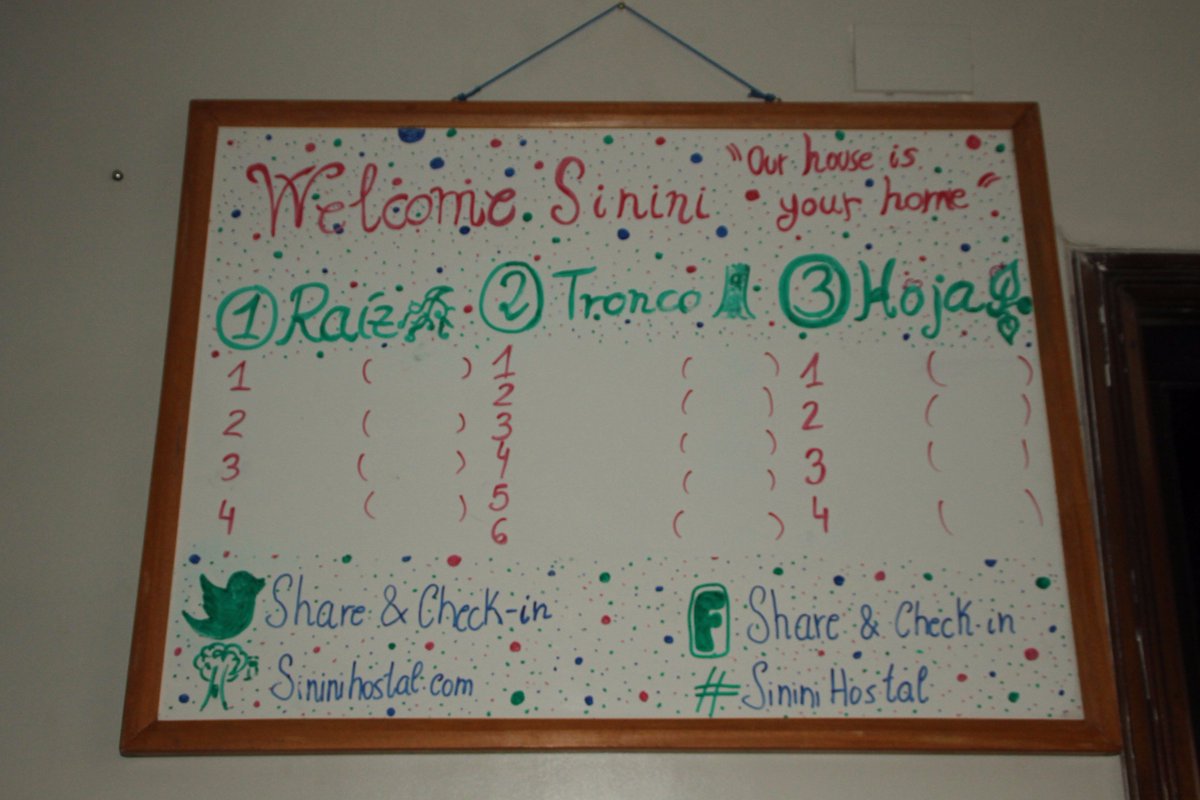 Welcome Sinini "Our house is
your home"
1 Raíz 2 Tronco 3 Hoja
1 ( ) 1 ( ) 1 ( )
2 ( ) 2 ( ) 2 ( )
3 ( ) 3 ( ) 3 ( )
4 ( ) 4 ( ) 4 ( )
5 ( )
6
Share & Check-in
Sininihostal.com
F Share & Check-in
# Sinini Hostal